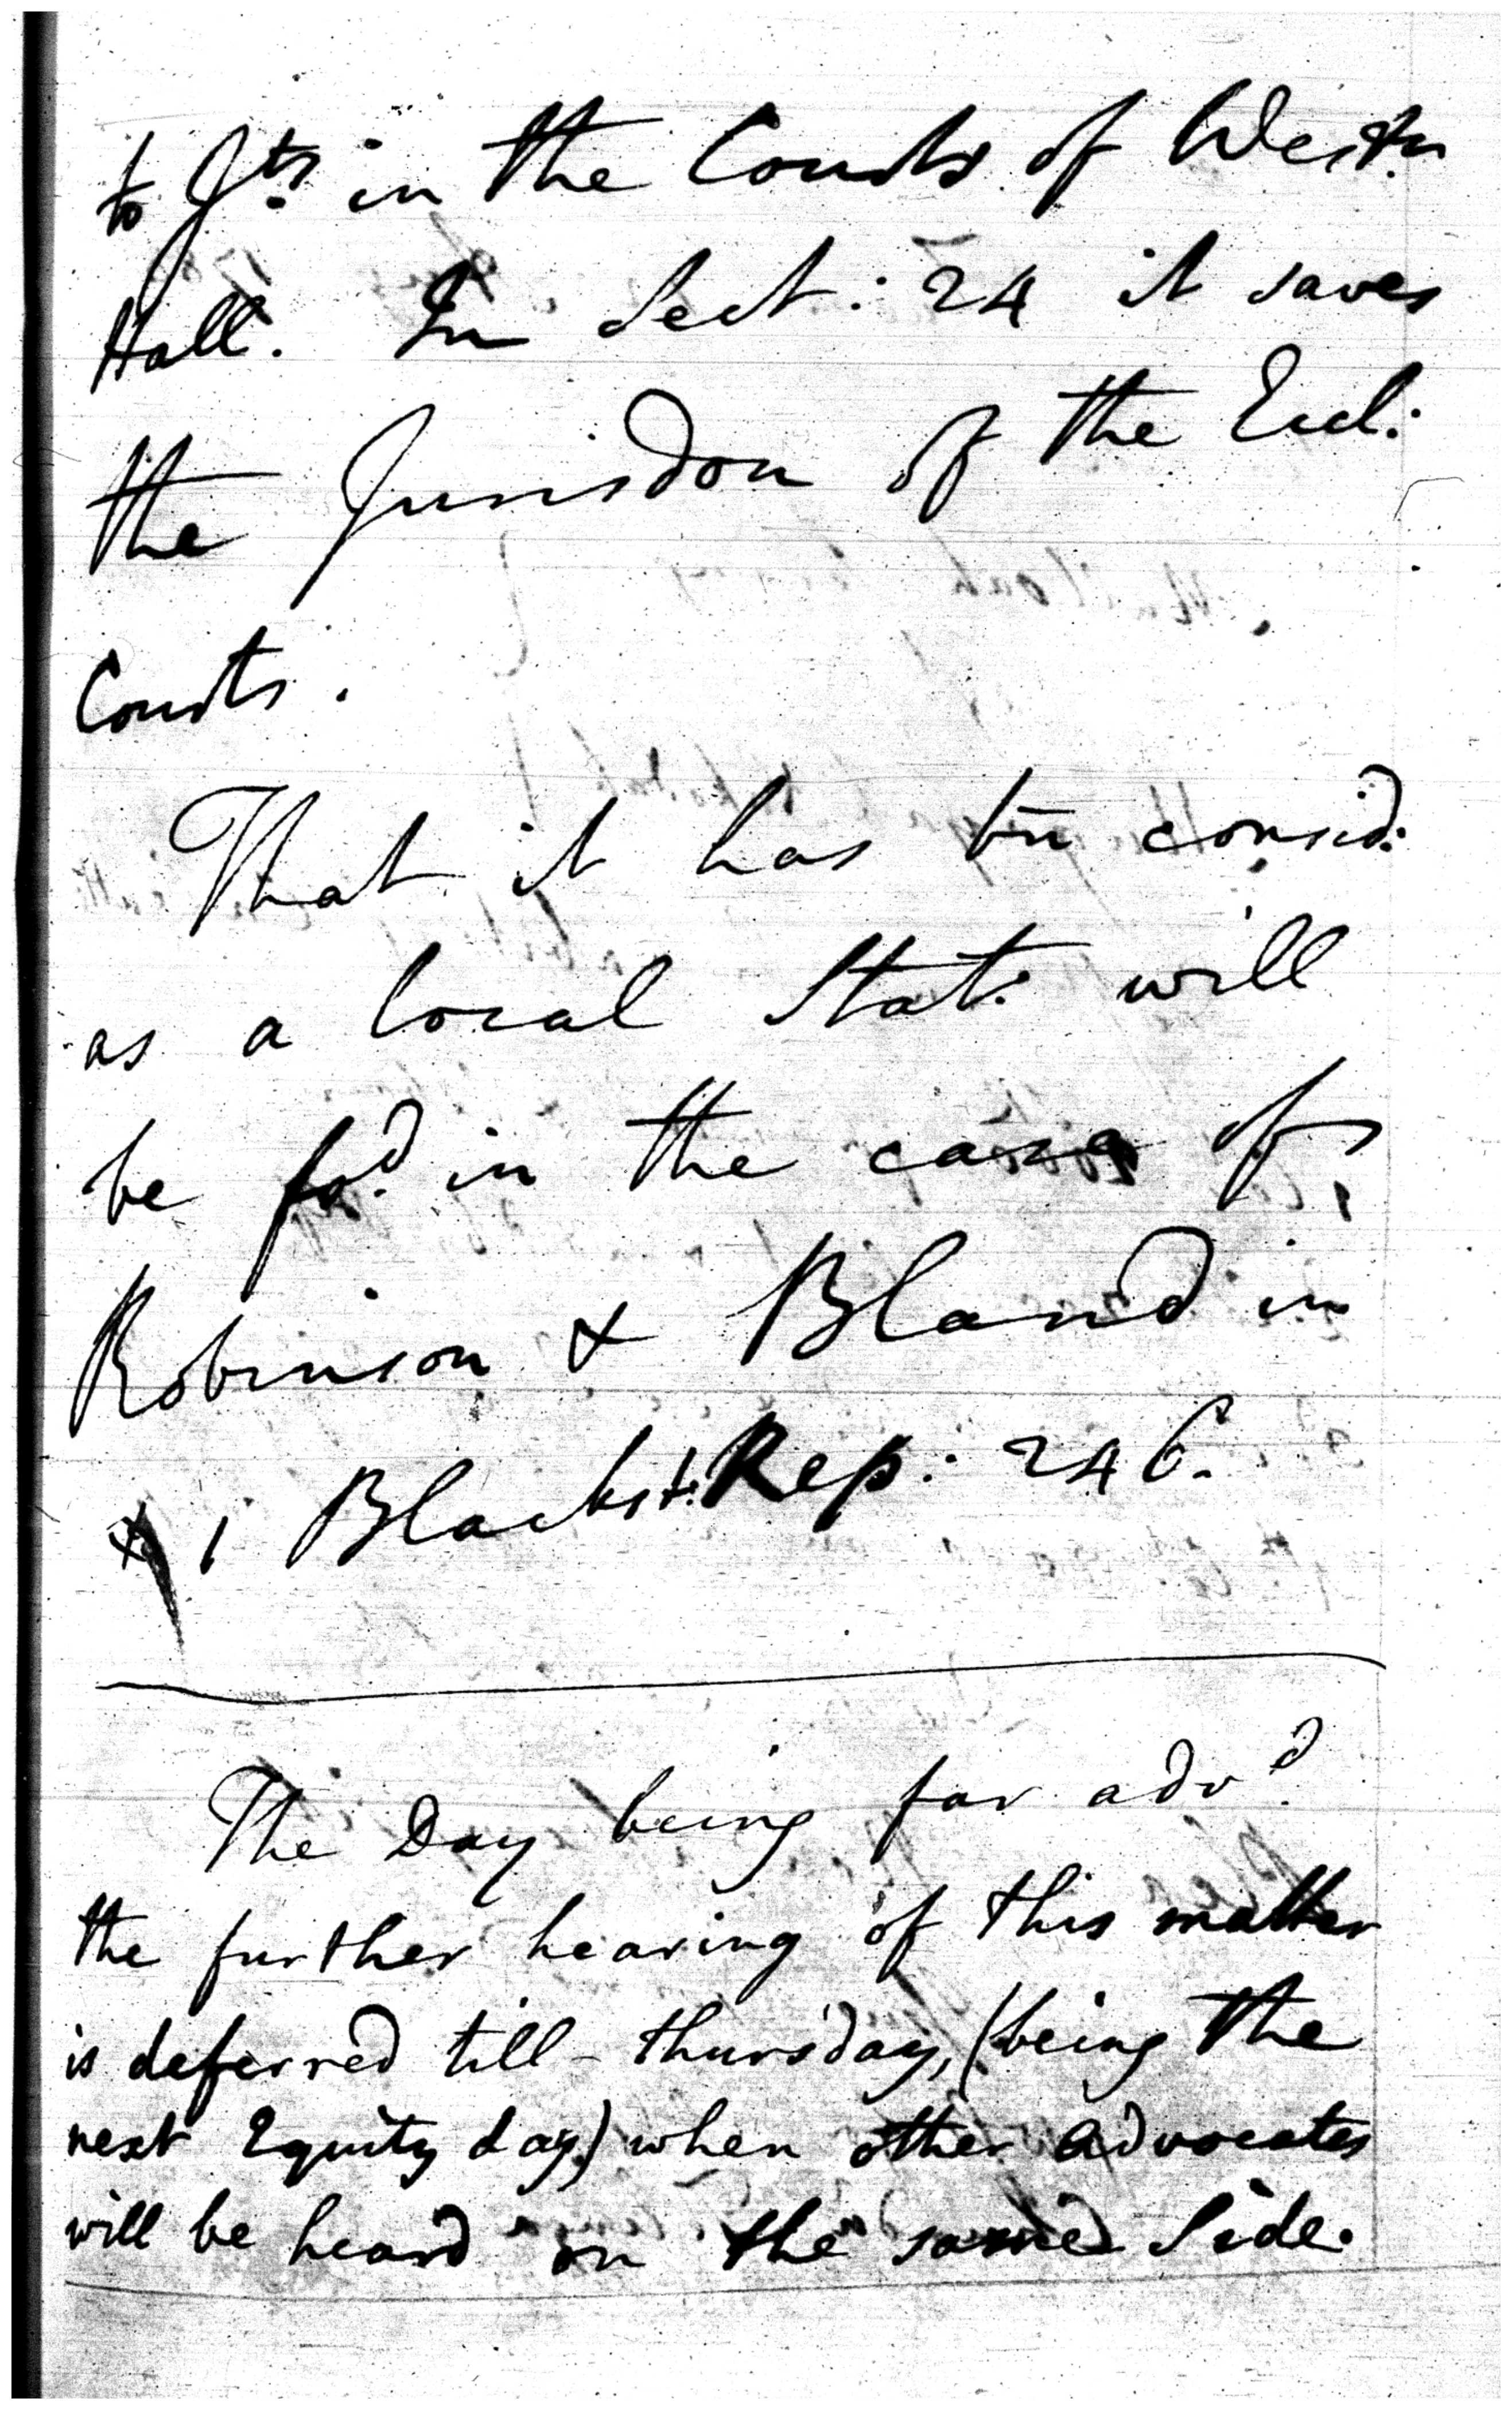 to Jts. in the Courts of Westr.
Hall. In Sect: 24 it saves
the Jurisdon of the Eccl:
Courts.
That it has bn consid:
as a local Stat: will
be fod. in the case of
Robinson & Bland in
1 Blackst: Rep: 246.
The Day being far advd.
the further hearing of this matter
is deferred till - thursday, (being the
next Equity day) when other advocates
will be heard on the same Side.